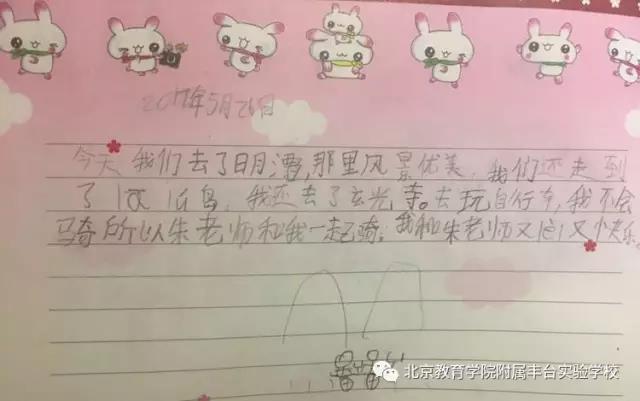 2017年5月26日
今天我们去了日月潭,那里风景优美,我们还走到
了 我还去了玄光寺。去玩自行车,我不会
骑所以朱老师和我一起骑。我和朱老师又 又快乐
北京教育学院附属丰台实验学校